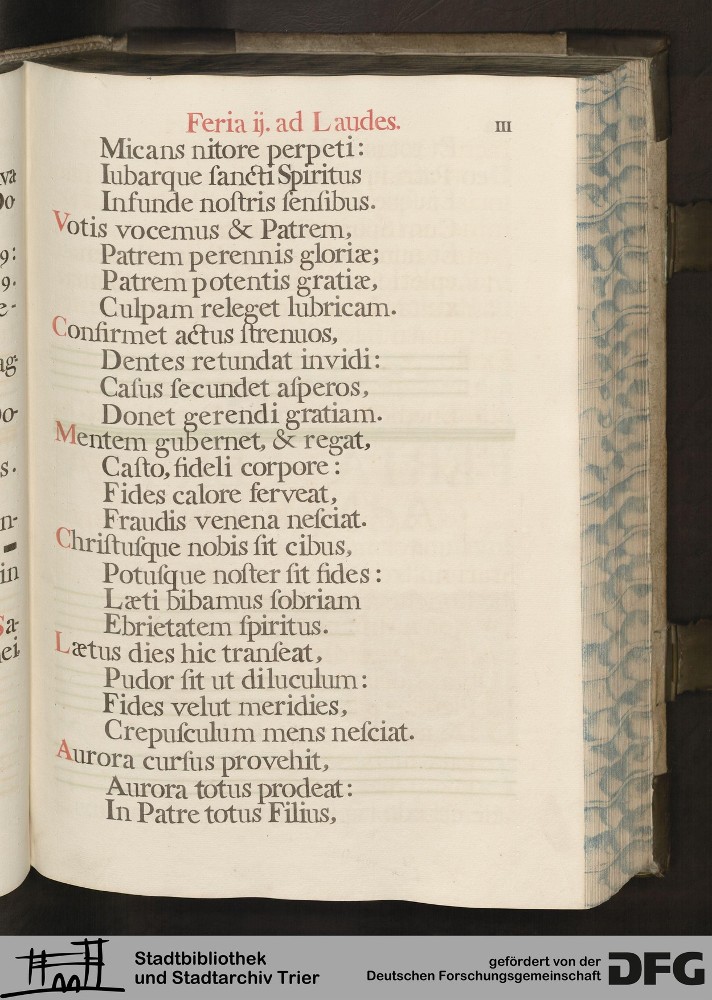 Feria ij. ad Laudes.
III
Micans nitore perpeti:
Iubarque ſancti Spiritus
Infunde noſtris ſenſibus.
Votis vocemus & Patrem,
Patrem perennis gloriæ;
Patrem potentis gratiæ,
Culpam releget lubricam.
Confirmet actus ſtrenuos,
Dentes retundat invidi:
Caſus ſecundet aſperos,
Donet gerendi gratiam.
Mentem gubernet, & regat,
Caſto, fideli corpore:
Fides calore ferveat,
Fraudis venena neſciat.
Chriſtuſque nobis ſit cibus,
Potuſque noſter ſit fides:
Læti bibamus ſobriam
Ebrietatem ſpiritus.
Lætus dies hic tranſeat,
Pudor ſit ut diluculum:
Fides velut meridies,
Crepuſculum mens neſciat.
Aurora curſus provehit,
Aurora totus prodeat:
In Patre totus Filius,
Stadtbibliothek
und Stadtarchiv Trier
gefördert von der
Deutschen Forschungsgemeinschaft
DFG